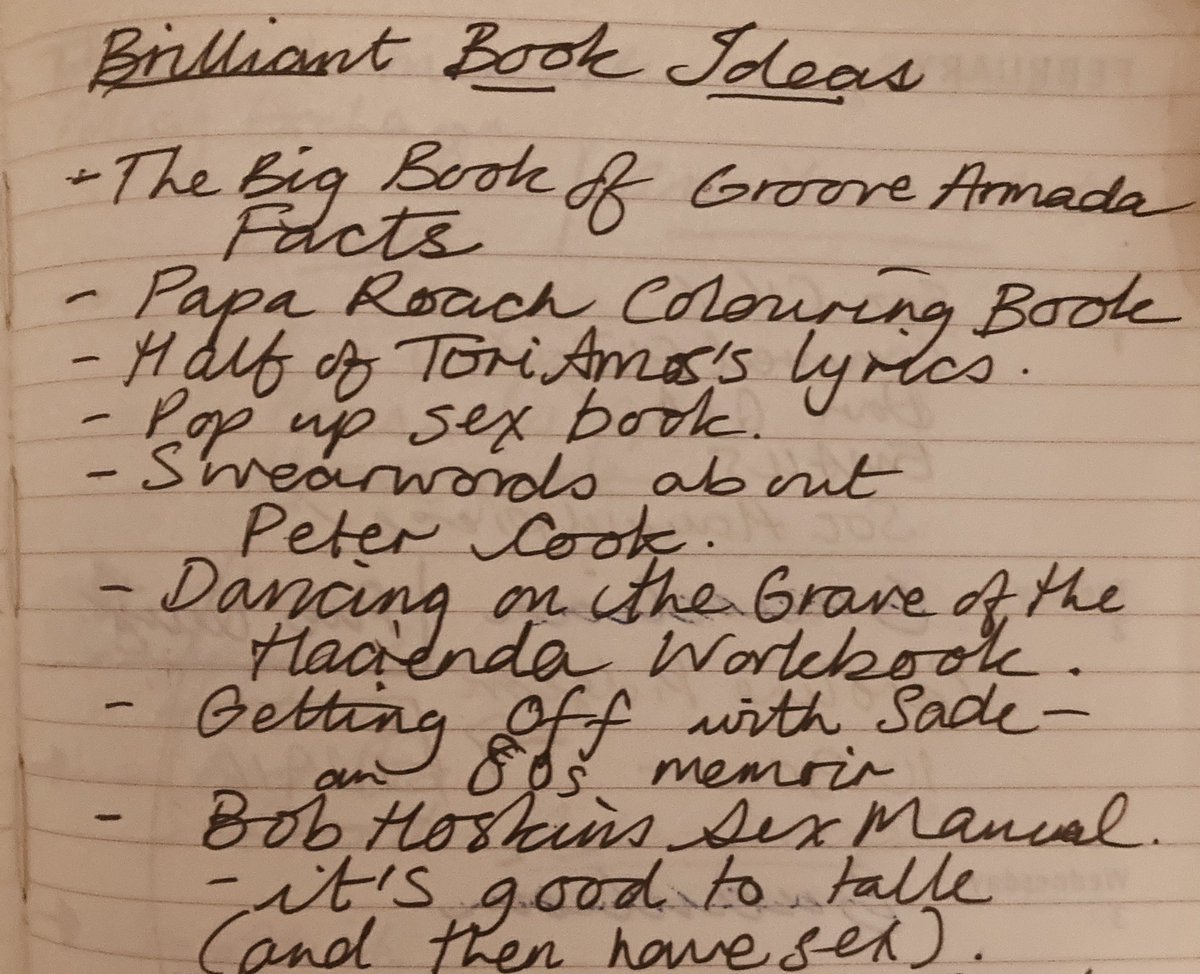 Brilliant Book Ideas
- The Big Book of Groove Armada
Facts
- Papa Roach Colouring Book
- Half of Tori Amos's lyrics.
- Pop up sex book.
- Swearwords about
Peter Cook.
- Dancing on the Grave of the
Hacienda Workbook.
- Getting Off with Sade -
an 80s memoir
- Bob Hoskins Sex Manual.
- it's good to talk
(and then have sex).